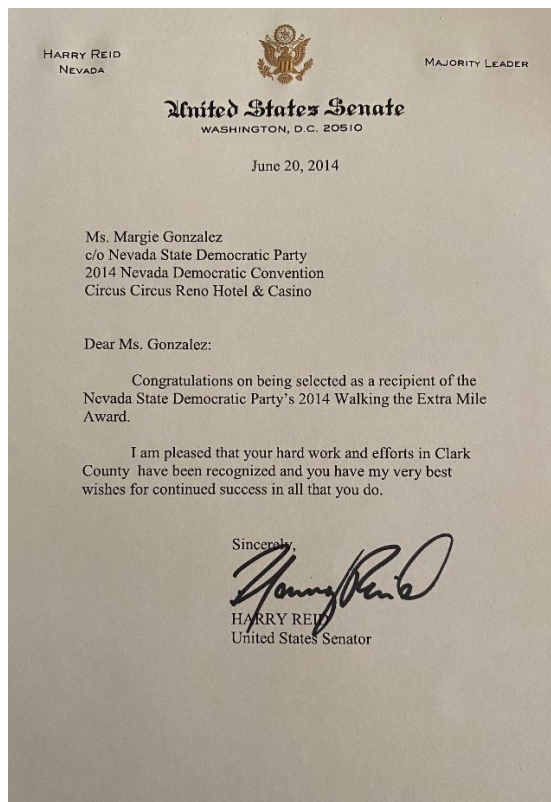 HARRY REID
NEVADA
MAJORITY LEADER
United States Senate
WASHINGTON, D.C. 20510
June 20, 2014
Ms. Margie Gonzalez
c/o Nevada State Democratic Party
2014 Nevada Democratic Convention
Circus Circus Reno Hotel & Casino
Dear Ms. Gonzalez:
Congratulations on being selected as a recipient of the
Nevada State Democratic Party's 2014 Walking the Extra Mile
Award.
I am pleased that your hard work and efforts in Clark
County have been recognized and you have my very best
wishes for continued success in all that you do.
Sincerely,
Harry Reid
HARRY REID
United States Senator